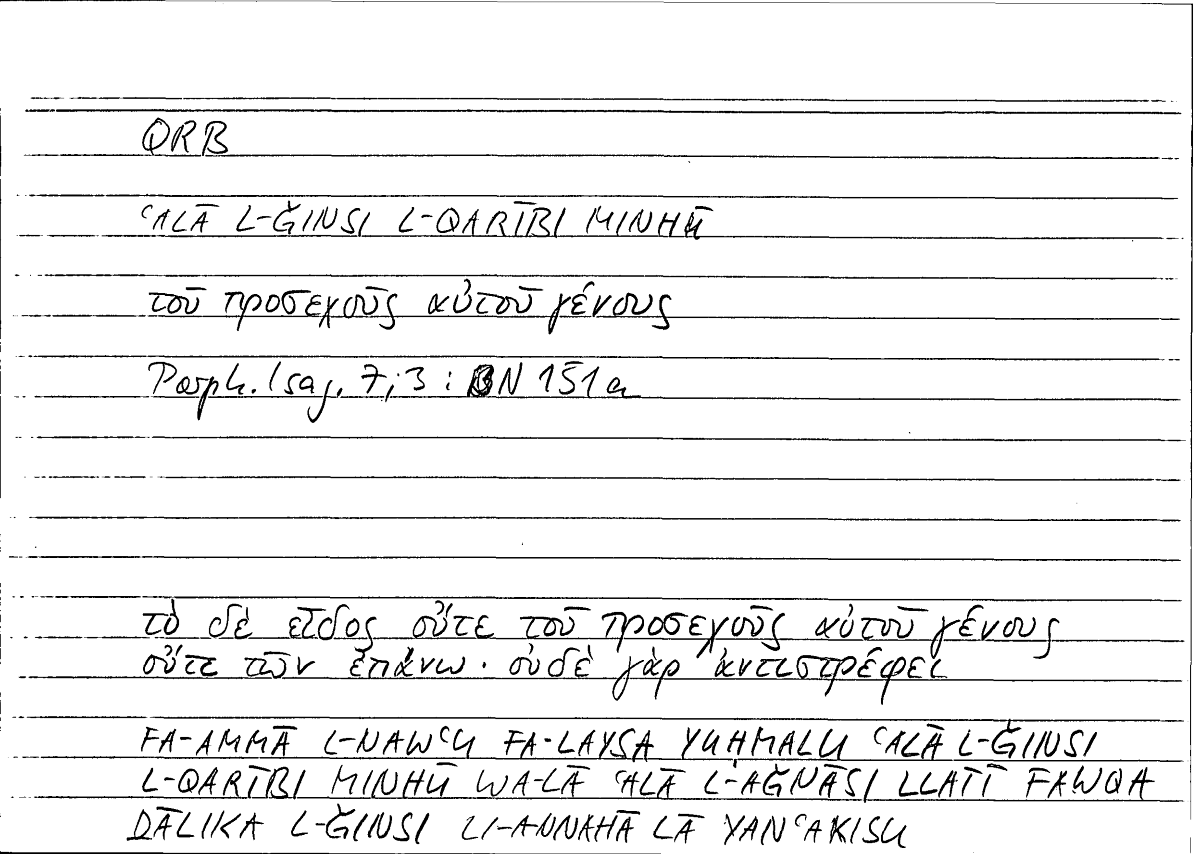 QRB
ʿALĀ L-ĞINSI L-QARĪBI MINHŪ
τοῦ προσεχοῦς αὐτοῦ γένους
Porph. Isag. 7,3 : BN 151a
τὸ δὲ εἶδος οὔτε τοῦ προσεχοῦς αὐτοῦ γένους
οὔτε τῶν ἐπάνω · οὐδὲ γὰρ ἀντιστρέφει
FA-AMMĀ L-NAWʿU FA-LAYSA YUHMALU ʿALĀ L-ĞINSI
L-QARĪBI MINHŪ WA-LĀ ʿALĀ L-AĞNĀSI LLATĪ FAWQA
DĀLIKA L-ĞINSI LI-ANNAHĀ LĀ YANʿAKISU